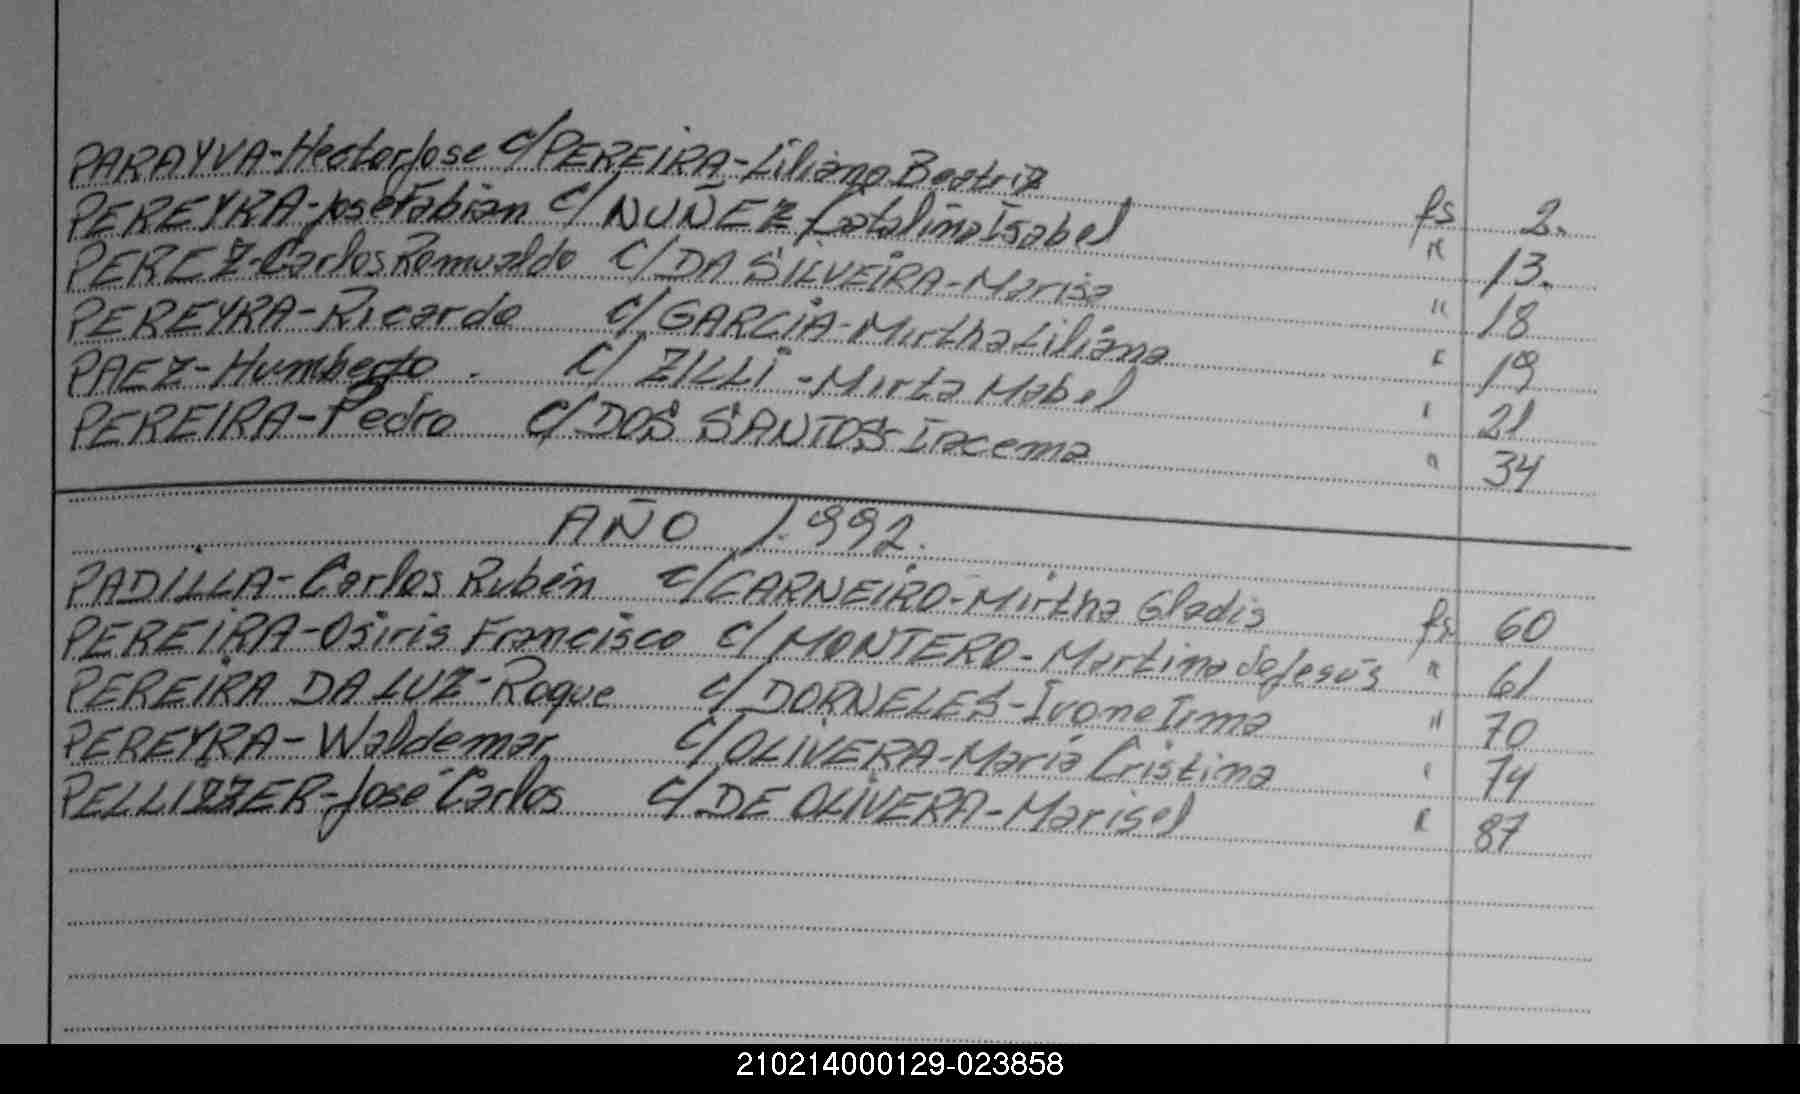 PARAYVA-Hector Jose c/ PEREIRA-Liliana Beatriz fs 2.
PEREYRA-José Fabian c/ NUÑEZ Catalina Isabel " 13.
PEREZ-Carlos Romualdo c/ DA SILVEIRA-Marisa " 18
PEREYRA-Ricardo c/ GARCIA-Mirtha Liliana " 19
PAEZ-Humberto. c/ ZILLI-Mirta Mabel " 21
PEREIRA-Pedro c/ DOS SANTOS-Iracema " 34
AÑO 1.992.
PADILLA-Carlos Rubén c/ CARNEIRO-Mirtha Gladis fs. 60
PEREIRA-Osiris Francisco c/ MONTERO-Martina de Jesús " 61
PEREIRA DA LUZ-Roque c/ DORNELES-Ivone Irma " 70
PEREYRA-Waldemar c/ OLIVERA-María Cristina " 74
PELLIZZER-José Carlos c/ DE OLIVERA-Marisel " 87
210214000129-023858